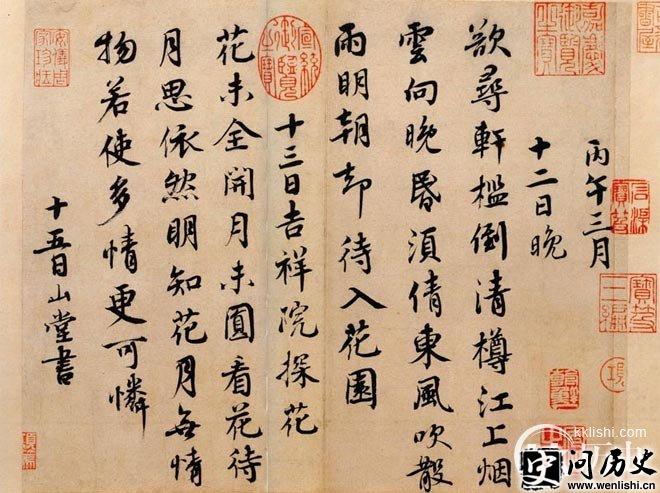 丙午三月
十二日晚
欲尋軒檻倒清樽江上烟
雲向晚昏須倩東風吹散
雨明朝却待入花園
十三日吉祥院探花
花未全開月未圓看花待
月思依然明知花月無情
物若使多情更可憐
十五日山堂書
嘉慶御覽之寶
宣統御覽之寶
kklishi.com
问历史
www.wenlishi.cn